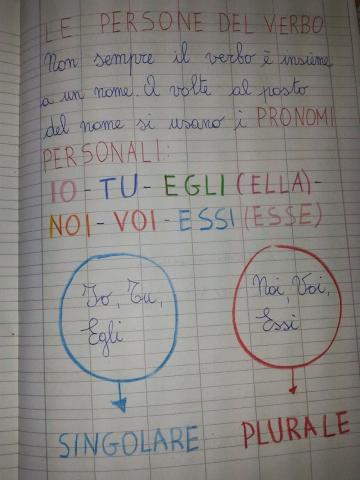 LE PERSONE DEL VERBO
Non sempre il verbo è insieme
a un nome. A volte al posto
del nome si usano i PRONOMI
PERSONALI:
IO - TU - EGLI (ELLA) -
NOI - VOI - ESSI (ESSE)
Io, Tu,
Egli
Noi, Voi,
Essi
SINGOLARE
PLURALE